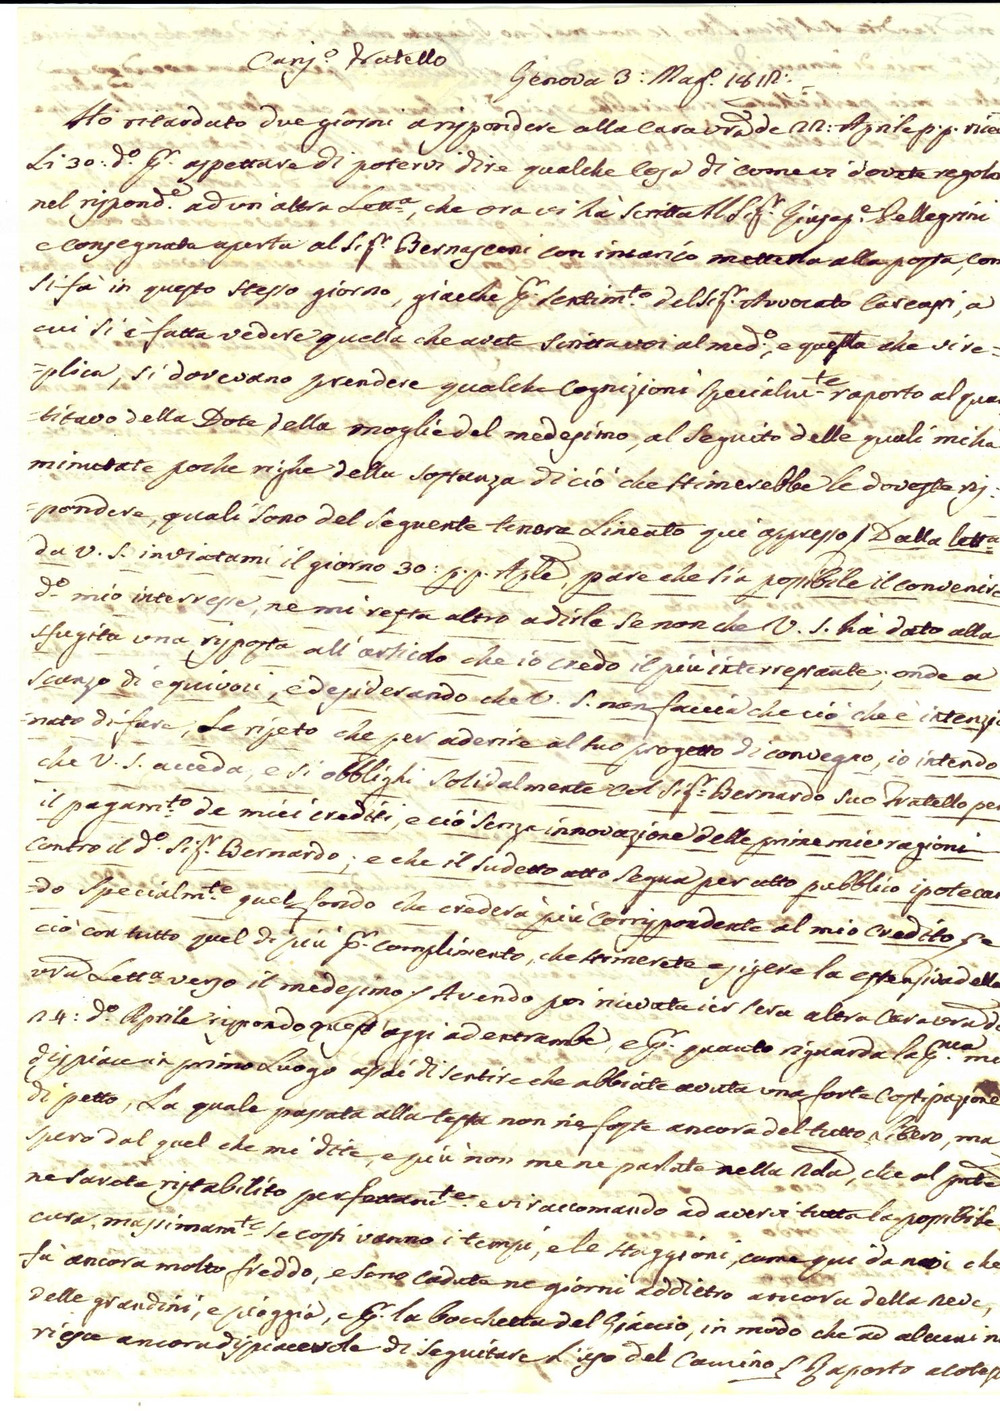 Cariss.º Fratello
Genova 3: Magº. 1812:
Ho ritardato due giorni a rispondere alla Cara vrã de 22: Aprile p.p. rice
li 30: dº. p. aspettare di potervi dire qualche Cosa di come vi dovete regola
nel rispond.e ad un altra Lett.a, che ora vi ha scritta Il Sigr. Giusep.e Pellegrini
e consegnata aperta al Sigr. Bernasconi con incarico metterla alla posta, com
si fà in questo stesso giorno, giacche p. sentim.to del Sigr. Avvocato Carcasi, a
cui si è fatta vedere quella che avete scritta voi al medº., e questa che vi re=
=plica, si dovevano prendere qualche Cognizioni specialm.te raporto al qua
=titavo della Dote della moglie del medesimo, al seguito delle quali mi ha
minutate poche righe della sostanza di ciò che stimerebbe le doveste ris=
=pondere, quali sono del seguente tenore Lineato qui appresso / Dalla lett.a
da V. S. inviatami il giorno 30: p.p. Aple, pare che sia possibile il convenire
dº mio interesse, ne mi resta altro a dirle se non che V. S. ha dato alla
sfugita una risposta all'articolo che io credo il più interressante; onde a
scanzo di equivoci, e desiderando che V. S. non faccia che ciò che è intenzi
=nato di fare, Le ripeto che per aderire al suo progetto di convegno, io intendo
che V. S. acceda, e si obblighi solidalmente col Sigr. Bernardo suo Fratello per
il pagam.to de miei crediti, e ciò senza innovazione delle prime mie ragioni
contro il dº. Sigr. Bernardo; e che il sudetto atto segua per atto pubblico ipotecan
=do specialm.te quel fondo che crederà più corrispondente al mio Credito se
ciò con tutto quel di più p. complimento, che stimerete esigere la estensiva della
vrã Lett.a verso il medesimo / Avendo poi ricevuta ier sera altra Cara vrã d
24: dº. Aprile rispondo quest'oggi ad entrambe, e p. quanto riguarda la p.ma mi
dispiace in primo Luogo assai di sentire che abbiate avuta una forte Costipazione
di petto, La quale passata alla testa non ne foste ancora del tutto libero, ma
spero dal quel che mi dite, e più non me ne parlate nella 2da, che al pnte
ne sarete ristabilito perfettam.te e vi raccomando ad avervi tutta la possibile
cura, massimam.te se costì vanno i tempi, e le staggioni, come qui da noi che
fà ancora molto freddo, e sono cadute ne giorni addietro ancora della neve,
delle grandini, e pioggia, e p. la bocchetta del Giaccio, in modo che ad alcuni n
riesce ancora dispiacevole di seguitare L'uso del Camino / Raporto a cotest